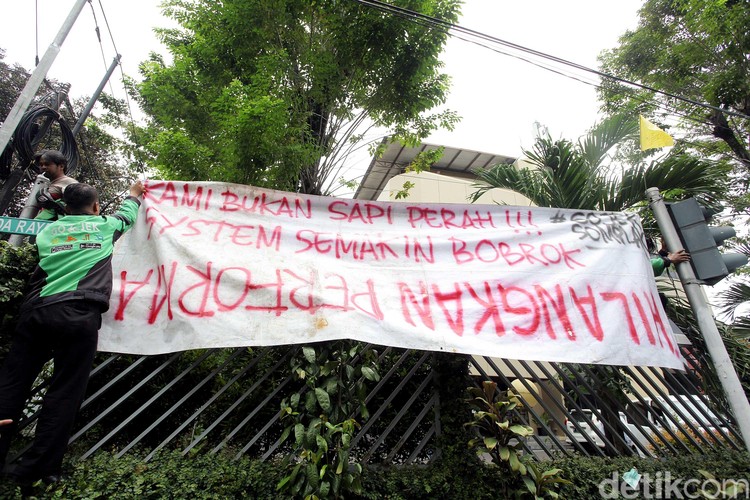 KAMI BUKAN SAPI PERAH !!!
SYSTEM SEMAKIN BOBROK
HILANGKAN PERFORMA
detikcom